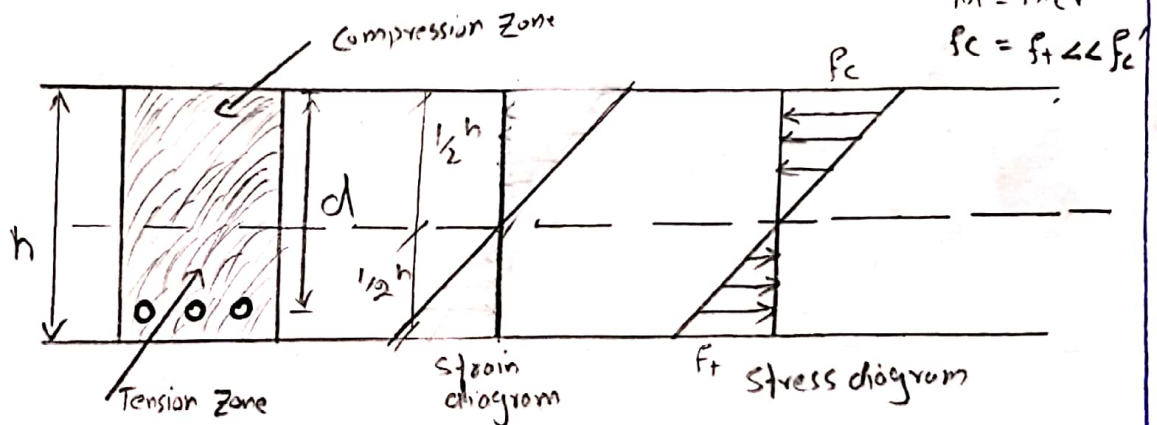 Compression Zone
fc = ft << fc'
fc
h
d
1/2 h
1/2 h
Tension Zone
Strain
diagram
ft
Stress diagram